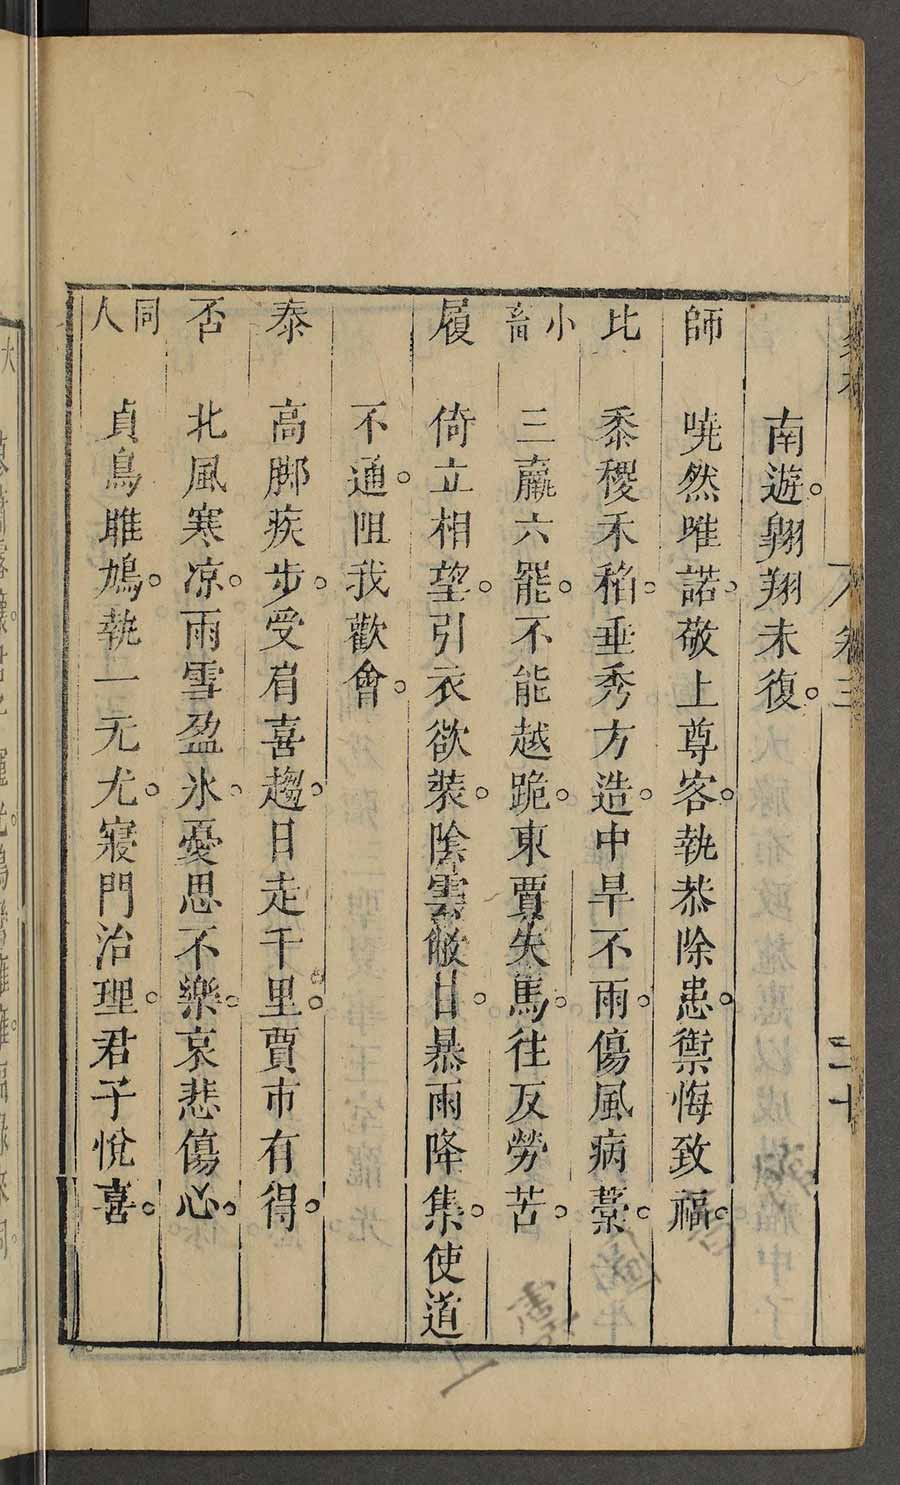 卷三
二十
南遊。翱翔未復。
師 嘵然唯諾。敬上尊客。執恭除患。禦悔致福。
比 黍稷禾稻。垂秀方造。中旱不雨。傷風病藁。
小畜 三羸六罷。不能越跪。東賈失馬。往反勞苦。
履 倚立相望。引衣欲裝。陰雲蔽日。暴雨降集。使道
不通。阻我歡會。
泰 高脚疾步。受肩喜趨。日走千里。賈市有得。
否 北風寒凉。雨雪盈氷。憂思不樂。哀悲傷心。
同人 貞鳥雎鳩。執一无尤。寢門治理。君子悅喜。